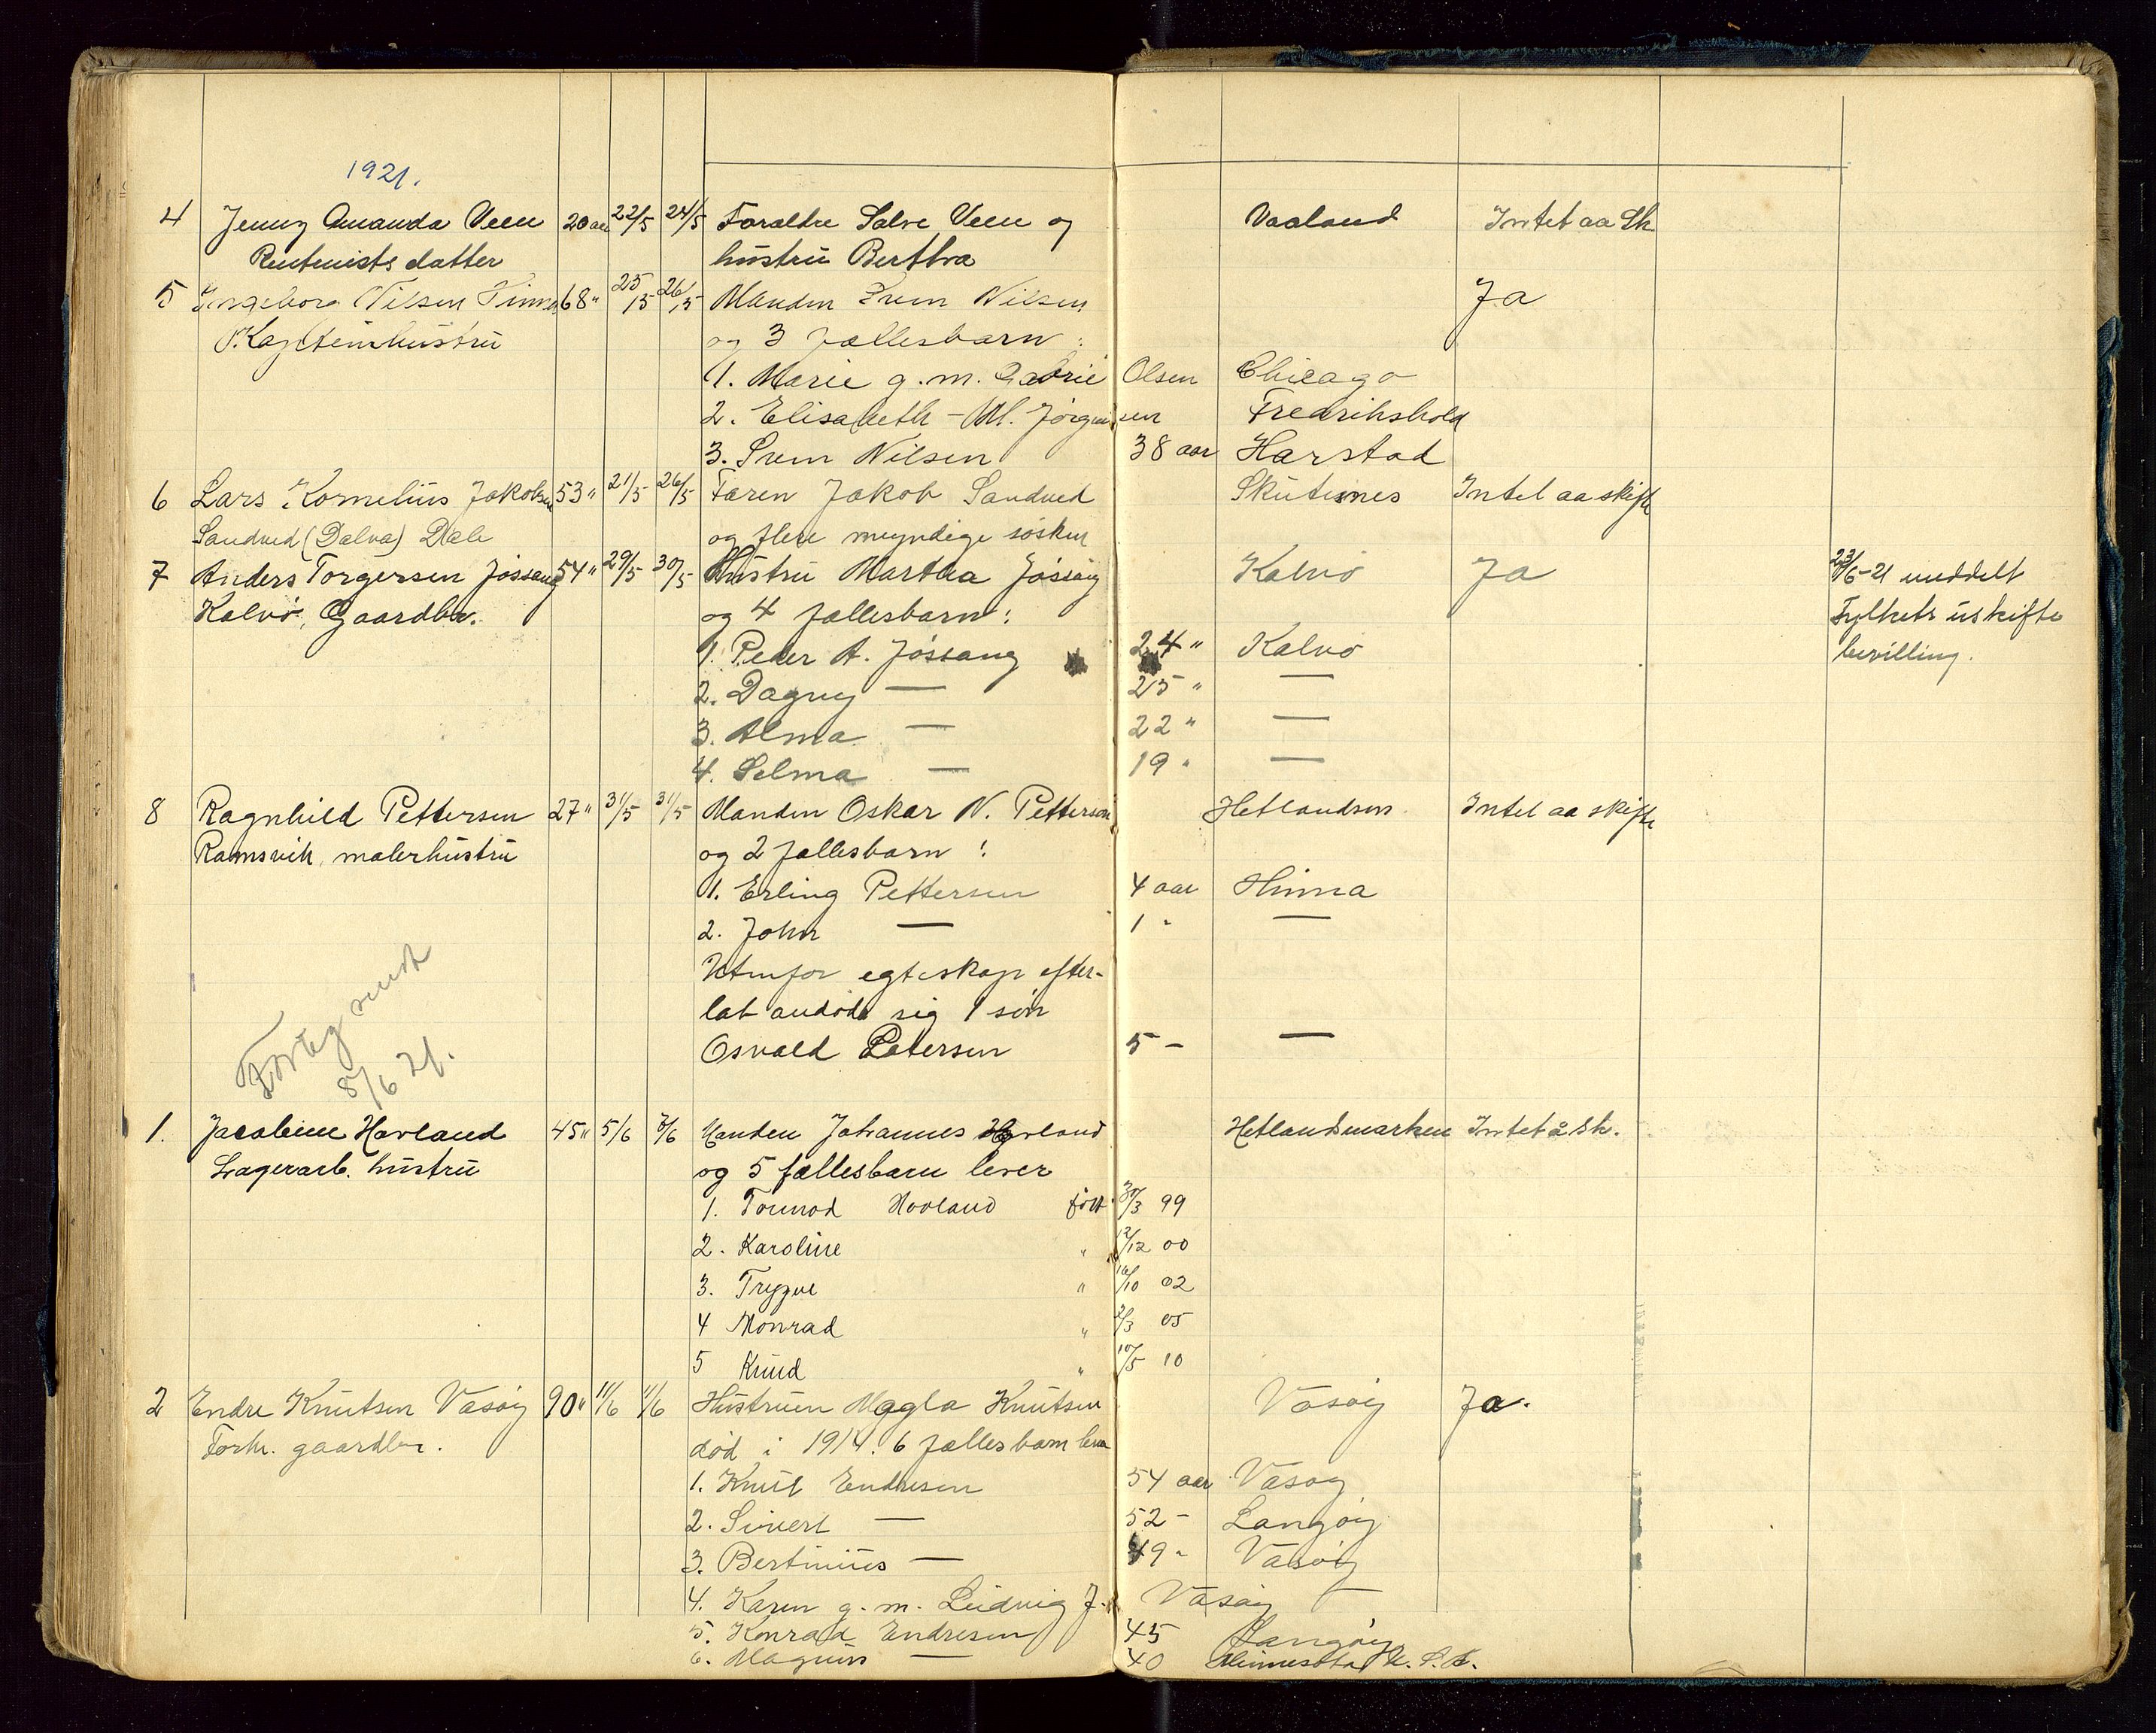 1921.
4 Jenny Amanda Veen 20 aar 22/5 24/5 Forældre Salve Veen og Vaaland Intet aa Sk
Rentenists datter hustru Berttra
5 Ingeborg Nilsen 68" 25/5 26/5 Manden Sven Nilsen Ja
Kapteinhustru og 3 fællesbarn :
1. Marie g. m. Gabriel Olsen Chicago
2. Elisabeth - M. Jörgensen Fredrikshald
3. Sven Nilsen 38 aar Harstad
6 Lars Kornelius Jakobsen 53" 21/5 26/5 Faren Jakob Sandved Skutesnes Intet aa skifte
Sandved (Dalva) Dale og flere myndige søsken
7 Anders Torgersen Jössang 54" 29/5 30/5 Hustru Martha Jössang Kalvö Ja 23/6-21 meddelt
Kalvö, Gaardbr. og 4 fællesbarn : Fylkets uskifte
1. Peder A. Jössang 24" Kalvö bevilling.
2. Dagny — 25" —
3. Alma — 22" —
4. Selma — 19" —
8 Ragnhild Pettersen 27" 31/5 31/5 Manden Oskar N. Pettersen Hetlandsm. Intet aa skifte
Ramsvik, malerhustru og 2 fællesbarn :
1. Erling Pettersen 4 aar Hinna
2. John — 1 " —
Utenfor egteskap efter-
lat avdöde sig 1 sön
Osvald Petersen 5 — —
Forteg sendt
8/6 21.
1. Jacobine Havland 45" 5/6 7/6 Manden Johannes Havland Hetlandsmarken Intet å Sk.
Lagerarb. hustru og 5 fællesbarn lever
1. Tormod Hovland född 30/3 99
2. Karoline " 12/12 00
3. Trygve " 16/10 02
4 Monrad " 2/3 05
5 Knud " 10/5 10
2 Endre Knutsen Vasöy 90" 11/6 11/6 Hustruen Magla Knutsen Vasöy Ja.
Forh. gaardbr. död i 1914. 6 fælles barn leva
1. Knut Endresen 54 aar Vasøy
2. Sivert — 52 — Langöy
3. Bertinius — 49 " Vasöy
4. Karen g. m. Ludvig J. Vasöy —
5. Konrad Endresen 45 Langöy
6. Magnus — 40 Minnesota U. S. A.